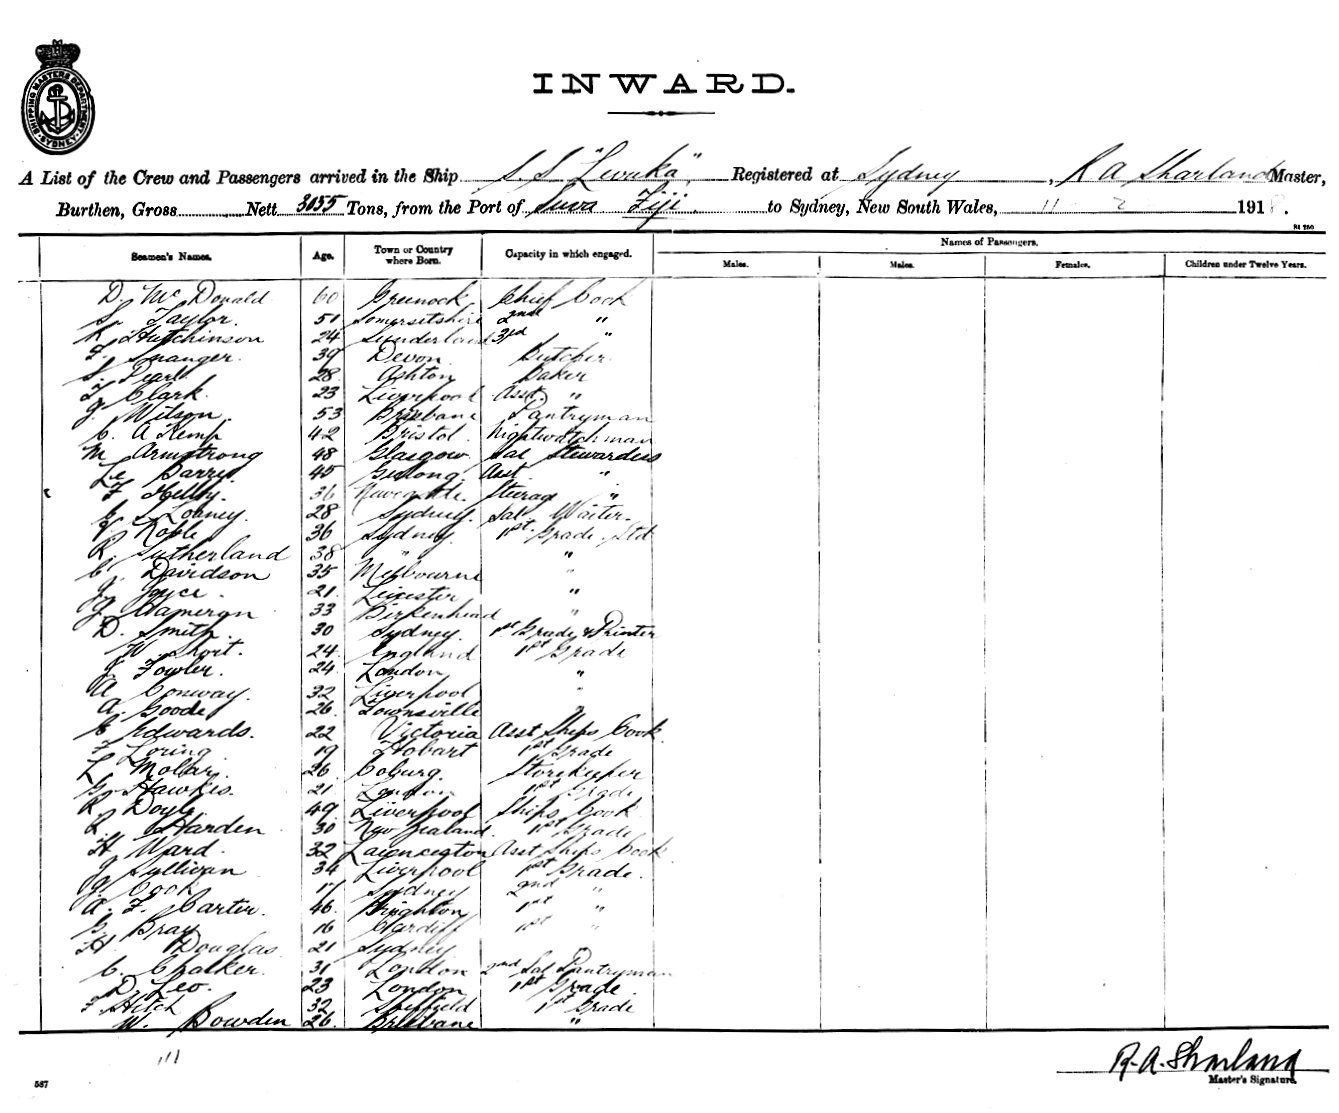 SHIPPING MASTERS DEPARTMENT SYDNEY
INWARD.
A List of the Crew and Passengers arrived in the Ship S.S. "Levuka" Registered at Sydney, R A Sharland Master,
Burthen, Gross Nett 3055 Tons, from the Port of Suva Fiji to Sydney, New South Wales, 11 2 1918.
Seamen's Names. Age. Town or Country where Born. Capacity in which engaged. Names of Passengers.
Males. Males. Females. Children under Twelve Years.
D. McDonald 60 Greenock Chief Cook
S. Taylor. 51 Somersetshire 2nd "
R Hutchinson 24 Sunderland 3rd "
F. Smanger. 39 Devon Butcher
S. Pearl 28 Ashton Baker
T. Clark. 23 Liverpool Asst. "
J. Wilson 53 Brisbane Pantryman
C. A Kemp 42 Bristol Nightwatchman
M Armstrong 48 Glasgow Sal Stewardess
Le Barry 45 Geelong Asst "
F Kelly. 36 Newcastle. Steerage "
Looney. 28 Sydney. Sal. Waiter.
V Roble 36 Sydney. 1st Grade Std
R. Sutherland 38 " "
C. Davidson 35 Melbourne "
J. Joyce 21 Leicester "
J. Hameron 33 Birkenhead "
D. Smith. 30 Sydney. 1st Grade & Printer
W Short. 24 England 1st Grade
J. Fowler. 24 London "
A Conway. 32 Liverpool "
A. Goode 26 Townsville "
C Edwards. 22 Victoria Asst Ships Cook
F Loring 19 Hobart 1st Grade
L Mollar. 26 Coburg. Storekeeper
G. Hawkes. 21 London 1st Grade
R. Doyle. 49 Liverpool Ships Cook
R. Harden 30 New Zealand. 1st Grade
H Ward. 32 Launceston Asst Ships Cook
J Sullivan 34 Liverpool 1st Grade.
J. Cook 17 Sydney 2nd "
A. F. Carter. 46 Brighton 1st "
G. Bray 16 Cardiff 1st "
H. Douglas 21 Sydney
C. Chalker. 31 London 2nd Sal Pantryman
D. Leo. 23 London 1st Grade
F Hitch 32 Sheffield 1st Grade
W. Bowden 26 Brisbane "
R. A. Sharland
Master's Signature.
587